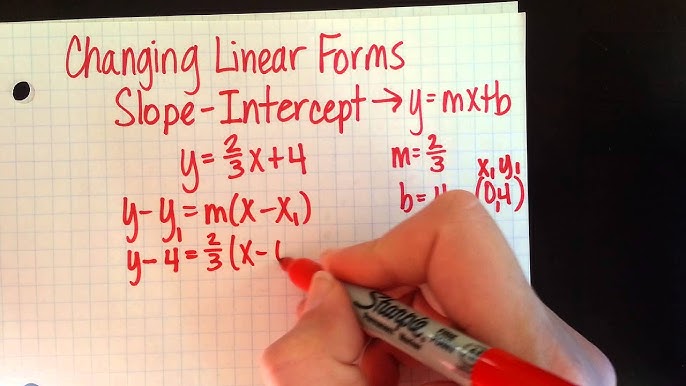 Changing Linear Forms
Slope-Intercept → y=mx+b
y=2/3x+4
m=2/3
x₁ y₁
b=4 (0,4)
y-y₁=m(x-x₁)
y-4=2/3(x-
Sharpie